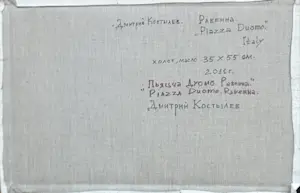 Дмитрий Костылев. Равенна.
"Piazza Duomo"
Italy
холст, масло 35 x 55 см.
2016г.
"Пьяцца Дуомо. Равенна."
"Piazza Duomo, Равенна.
Дмитрий Костылев